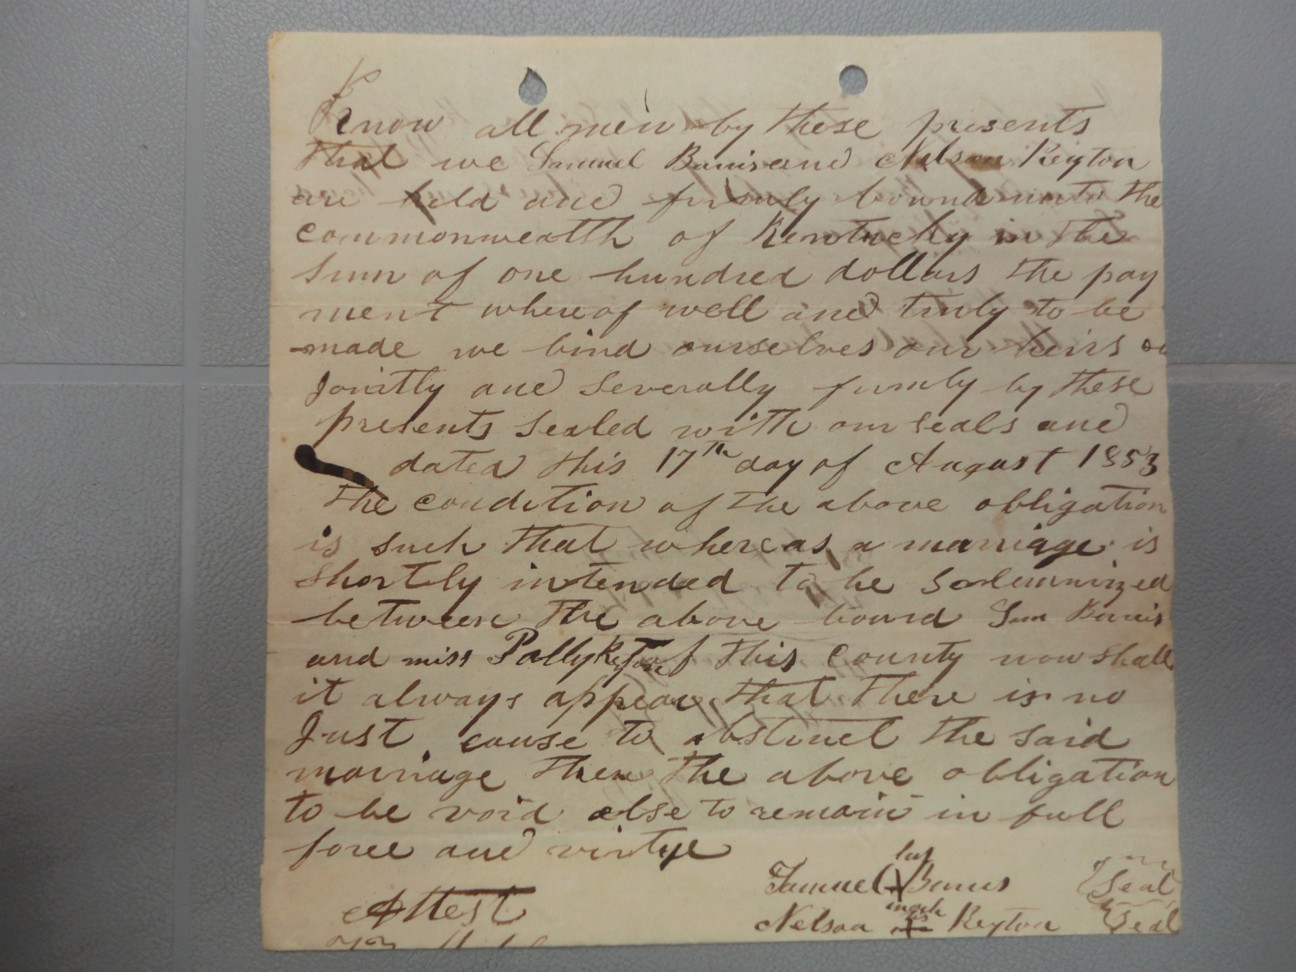 Know all men by these presents
that we Samuel Burris and Nelson Keyton
are held and firmly bound unto the
commonwealth of Kentucky in the
Sum of one hundred dollars the pay
ment where of well and truly to be
made we bind ourselves our heirs
Jointly and Severally firmly by these
presents Sealed with our seals and
dated this 17th day of August 1853
the condition of the above obligation
is such that whereas a marriage is
Shortly intended to be Solemnized
between the above bound Sam Burris
and miss Polly Keyton of this County now shall
it always appear that there is no
Just cause to obstruct the said
marriage then the above obligation
to be void else to remain in full
force and virtue
his
Samuel X Burris Seal
mark
Nelson X Keyton Seal
Attest